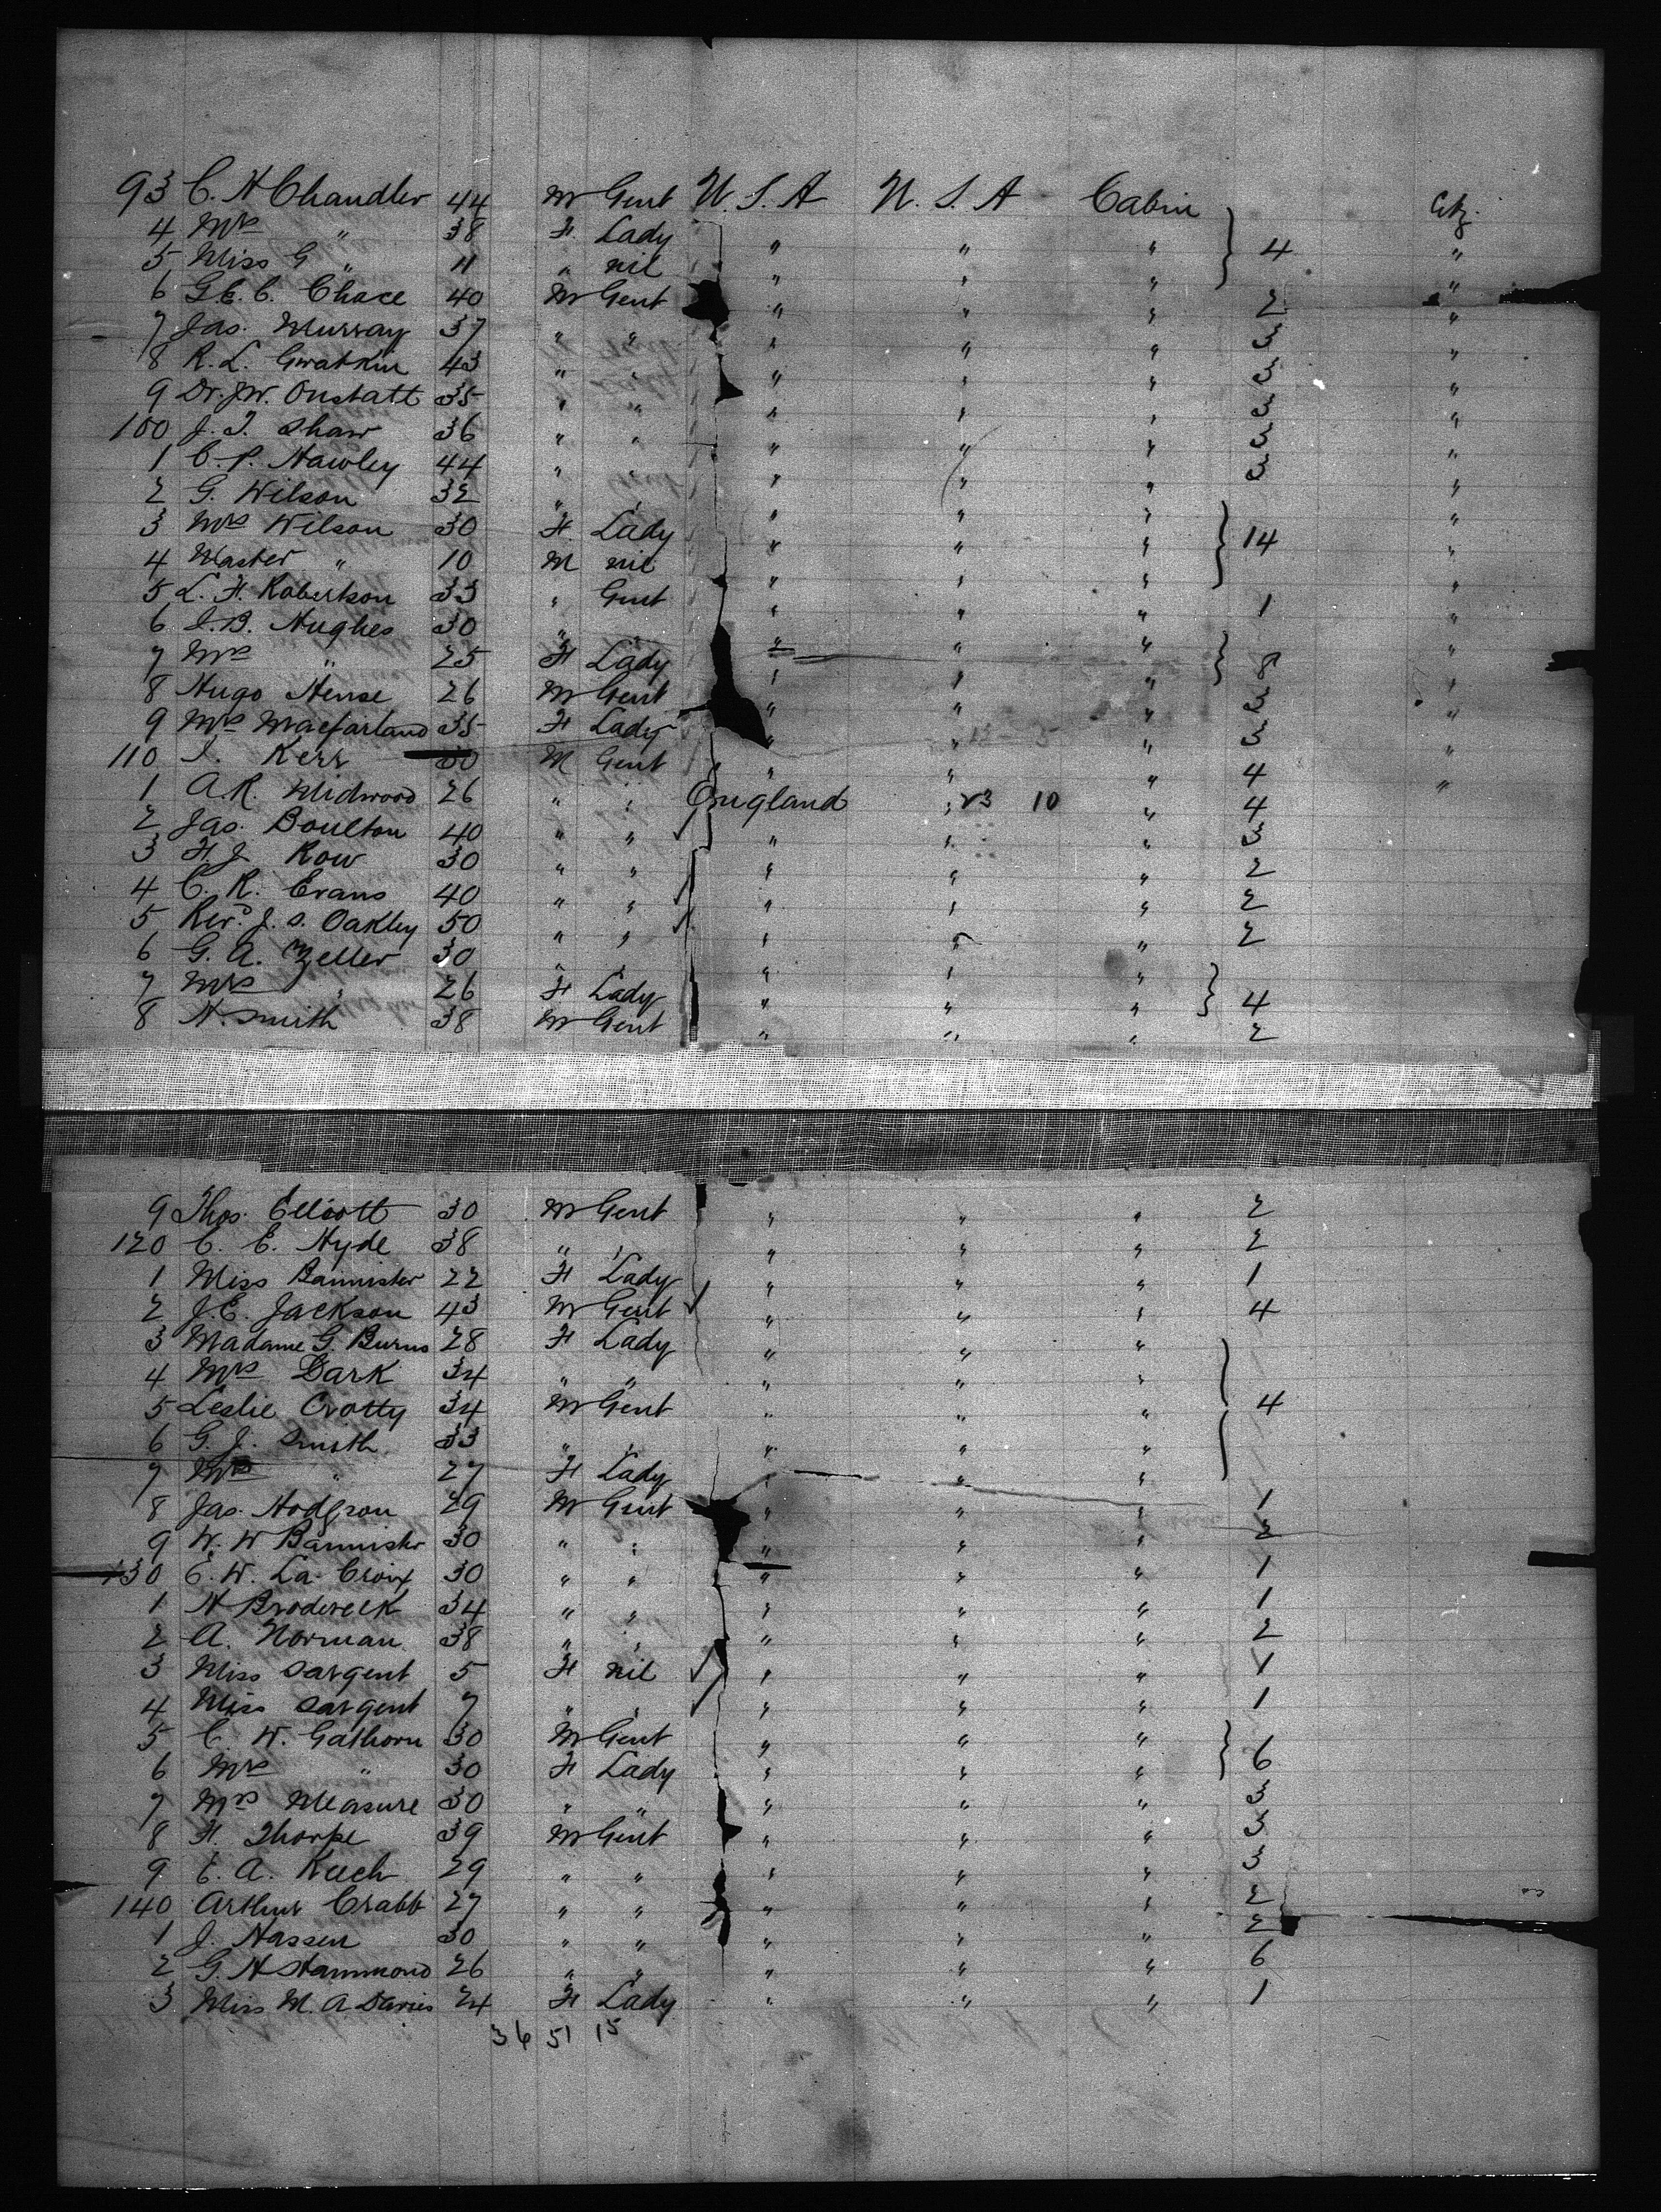 93 C. H Chandler 44 M Gent U. S. A U. S. A Cabin Citz.
4 Mrs " 38 F. Lady " " " } 4 "
5 Miss G " 11 " nil " " " "
6 G.E. C. Chace 40 M Gent " " " 2 "
7 Jas. Murray 37 " " " " " 3 "
8 R. L. Gwatkin 43 " " " " " 3 "
9 Dr. J.W. Oustatt 35 " " " " " 3 "
100 J. T. Shaw 36 " " " " " 3 "
1 C. P. Hawley 44 " " " " " 3 "
2 G. Wilson 32 " " " " " "
3 Mrs Wilson 30 F. Lady " " " } 14 "
4 Master " 10 M nil " " " "
5 L. F. Robertson 33 " Gent " " " 1 "
6 J.B. Hughes 30 " " " " "
7 Mrs " 25 F Lady " " " } 8 "
8 Hugo Hense 26 M Gent " " " 3 "
9 Mrs Macfarland 35 F Lady " " " 3 "
110 J. Kerr M Gent " " " 4 "
1 A.R. Midwood 26 " " England " 23 10 " 4
2 Jas. Boulton 40 " " " " " 3
3 F. J. Row 30 " " " " " 2
4 C. R. Evans 40 " " " " " 2
5 Revd. J. S. Oakley 50 " " " " " 2
6 G. A. Zeller 30 " " " " "
7 Mrs " 26 F Lady " " " } 4
8 H. Smith 38 M Gent " " " 2
9 Thos. Elliott 30 M Gent " " " 2
120 C. E. Hyde 38 " " " " " 2
1 Miss Bannister 22 F Lady " " " 1
2 J.E. Jackson 43 M Gent " " " 4
3 Madame G. Burns 28 F Lady " " "
4 Mrs Dark 34 " " " " " }
5 Leslie Crotty 34 M Gent " " " 4
6 G. J. Smith 33 " " " " " }
7 Mrs " 27 F Lady " " "
8 Jas. Hodgson 29 M Gent " " " 1
9 W. W Bannister 30 " " " " " 2
130 E. W. La Croix 30 " " " " " 1
1 H Brodereck 34 " " " " " 1
2 A. Norman 38 " " " " " 2
3 Miss Sargent 5 F nil " " " 1
4 Miss Sargent 7 " " " " " 1
5 C. W. Gathorn 30 M Gent " " "
6 Mrs " 30 F Lady " " " } 6
7 Mrs Measure 30 " " " " " 3
8 F. Thorpe 39 M Gent " " " 3
9 E. A. Keech 29 " " " " " 3
140 Arthur Crabb 27 " " " " " 2
1 J. Hassen 30 " " " " " 2
2 G. H Hammond 26 " " " " " 6
3 Miss M. A Davies 24 F Lady " " " 1
36 51 15